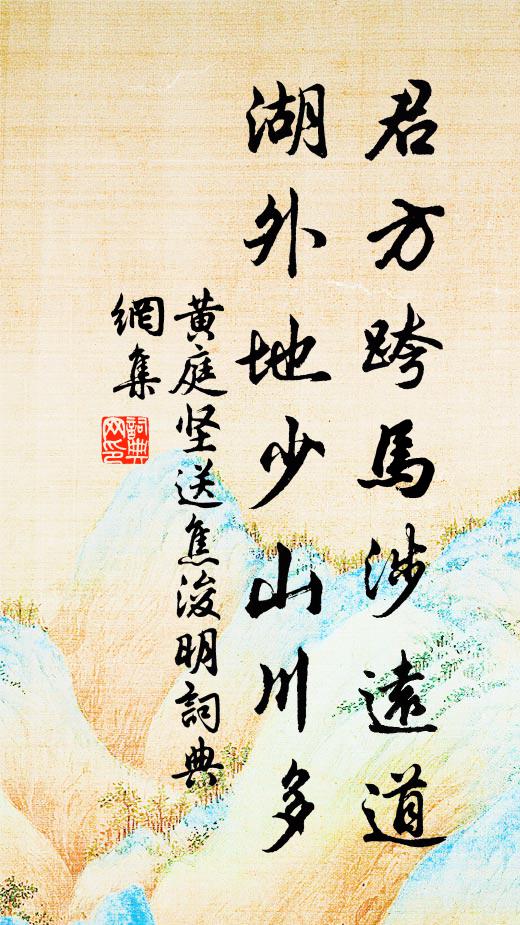 君方跨馬涉遠道
湖外地少山川多
黄庭坚送焦浚明詞典
網集
詞典
网印